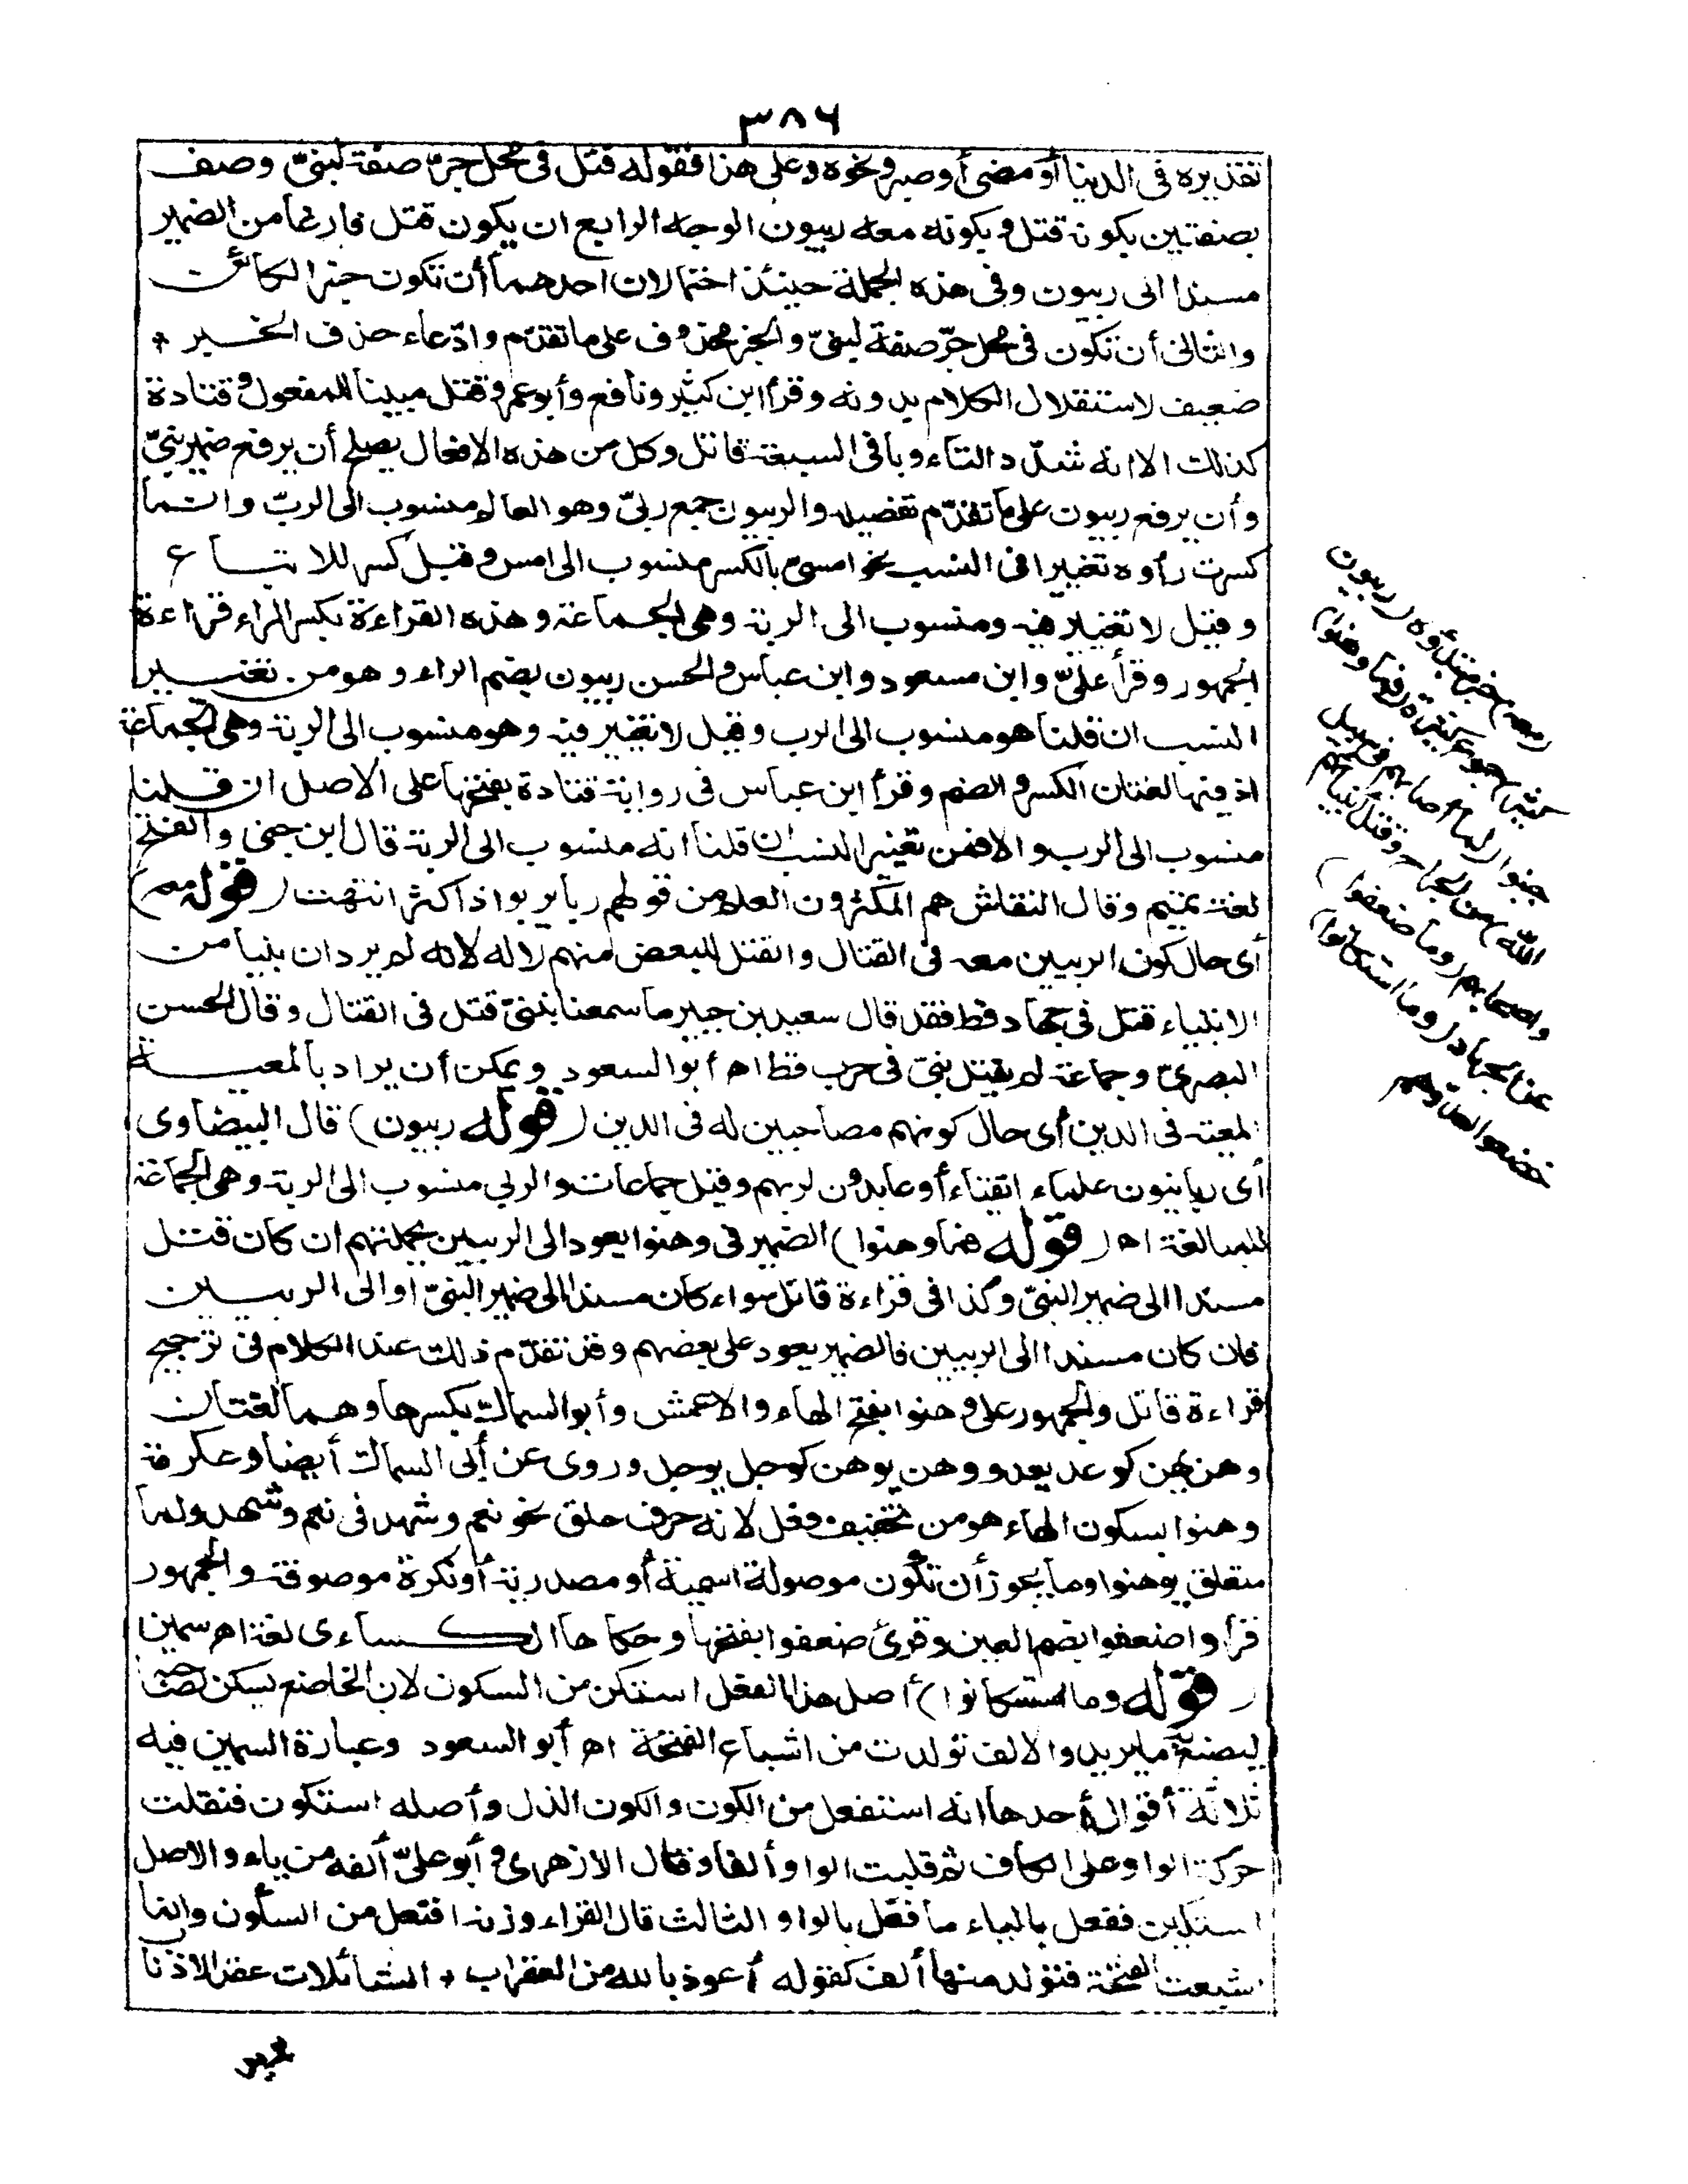 ٣٨٦
تقديره فى الدنيا أو مضى أو صبر ونحوه وعلى هذا فقوله قتل فى محل جرّ صفة لنبىّ وصف
بصفتين بكونه قتل وبكونه معه ربيون الوجه الرابع ان يكون قتل فارغا من الضمير
مسندا الى ربيون وفى هذه الجملة حينئذ احتمالان احدهما أن تكون خبرا لكائن
والثانى أن تكون فى محل جرّ صفة لنبىّ والخبر محذوف على ما تقدّم وادّعاء حذف الخبر *
ضعيف لاستقلال الكلام بدونه وقرأ ابن كثير ونافع وأبو عمرو قتل مبنيا للمفعول وقتادة
كذلك الا انه شدّد التاء وباقى السبعة قاتل وكل من هذه الافعال يصلح أن يرفع ضمير نبىّ
وأن يرفع ربيون على ما تقدّم تفصيله والربيون جمع ربىّ وهو العالم منسوب الى الربّ وانما
كسرت رأوه تغييرا فى النسب نحو امسىّ بالكسر منسوب الى امس وقيل كسر للاتباع
وقيل لا تغيير فيه ومنسوب الى الربة وهى الجماعة وهذه القراءة بكسر الراء قراءة
الجمهور وقرأ علىّ وابن مسعود وابن عباس والحسن ربيون بضم الراء وهو من تغيير
النسب ان قلنا هو منسوب الى الرب وقيل لا تغيير فيه وهو منسوب الى الربة وهى الجماعة
اذ فيها لغتان الكسر والضم وقرأ ابن عباس فى رواية قتادة بفتحها على الاصل ان قلنا
منسوب الى الرب والا فمن تغيير النسب ان قلنا انه منسوب الى الربة قال ابن جنى والفتح
لغة تميم وقال النقاش هم المكثرون العلم من قولهم ربا يربوا اذا كثر انتهت (قوله معه)
أى حال كون الربيين معه فى القتال والقتل للبعض منهم لا له لانه لم يرد ان نبيا من
الانبياء قتل فى جهاد قط فقد قال سعيد بن جبير ما سمعنا بنبىّ قتل فى القتال وقال الحسن
البصرىّ وجماعة لم يقتل نبىّ فى حرب قط اه أبو السعود ويمكن أن يراد بالمعيـــة
المعية فى الدين أى حال كونهم مصاحبين له فى الدين (قوله ربيون) قال البيضاوى
أى ربانيون علماء اتقياء أو عابدون لربهم وقيل جماعات والربي منسوب الى الربة وهى الجماعة
للمبالغة اه (قوله فما وهنوا) الضمير فى وهنوا يعود الى الربيين بجملتهم ان كان قتل
مسندا الى ضمير النبىّ وكذا فى قراءة قاتل سواء كان مسندا الى ضمير النبىّ او الى الربيين
فان كان مسندا الى الربيين فالضمير يعود على بعضهم وقد تقدّم ذلك عند الكلام فى ترجيح
قراءة قاتل والجمهور على وهنوا بفتح الهاء والاعمش وأبو السمال بكسرها وهما لغتان
وهن يهن كوعد يعد ووهن يوهن كوجل يوجل وروى عن أبى السمال أيضا وعكرمة
وهنوا بسكون الهاء هو من تخفيف فعل لانه حرف حلق نحو نعم وشهد فى نعم وشهد ولما
متعلق بوهنوا وما يجوز أن تكون موصولة اسمية أو مصدرية أو نكرة موصوفة والجمهور
قرأوا ضعفوا بضم العين وقرئ ضعفوا بفتحها وحكاها الكساءى لغة اه سمين
(قوله وما استكانوا) أصل هذا الفعل استكن من السكون لان الخاضع يسكن لصاحبه
ليصنع به ما يريد والالف تولدت من اشباع الفتحة اه أبو السعود وعبارة السمين فيه
ثلاثة أقوال أحدها انه استفعل من الكون والكون الذل وأصله استكون فنقلت
حركة الواو على الكاف ثم قلبت الواو ألفا وقال الازهرى وأبو علىّ ألفه من ياء والاصل
استكين ففعل بالياء ما فعل بالواو والثالث قال الفراء وزنه افتعل من السكون وانما
اشبعت الفتحة فتولد منها ألف كقوله أعوذ بالله من العقراب * الشائلات عقد الاذنا
(معه) خبر مبتدؤه (ربيون
كثير) جموع كثيرة (فما وهنوا)
جبنوا (لما أصابهم فى سبيل
الله) من الجراح وقتل أنبيائهم
وأصحابهم (وما ضعفوا)
عن الجهاد (وما استكانوا)
خضعوا لعدوهم